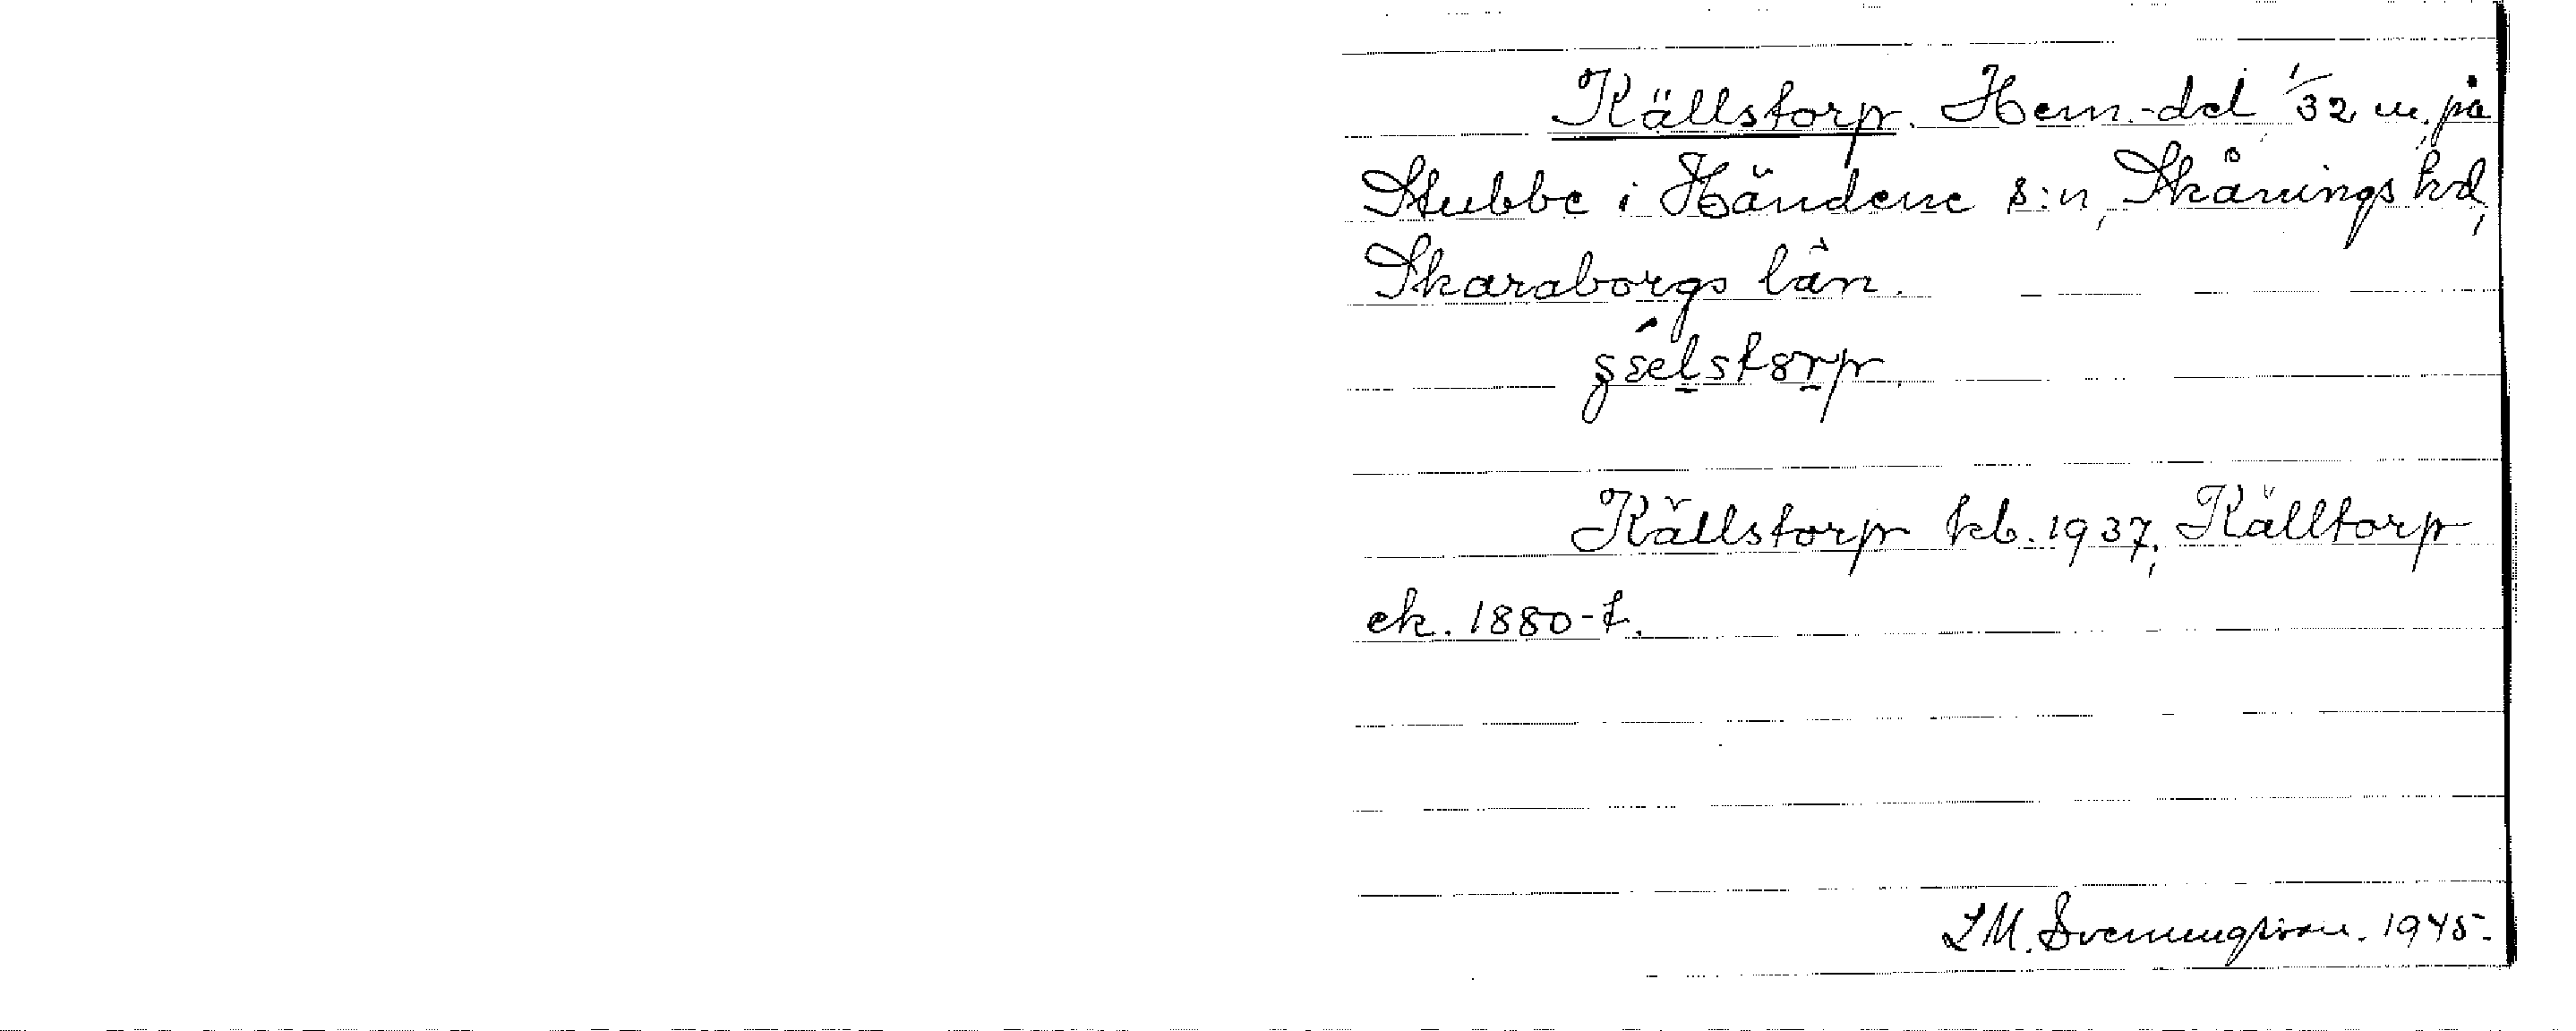 Källstorp. Hem.-del 1/32 m. på
Stubbe i Händene s:n, Skånings hd,
Skaraborgs län.
Källstorp kb. 1937, Källtorp
ek. 1880-t.
L M. Svenungsson. 1945.